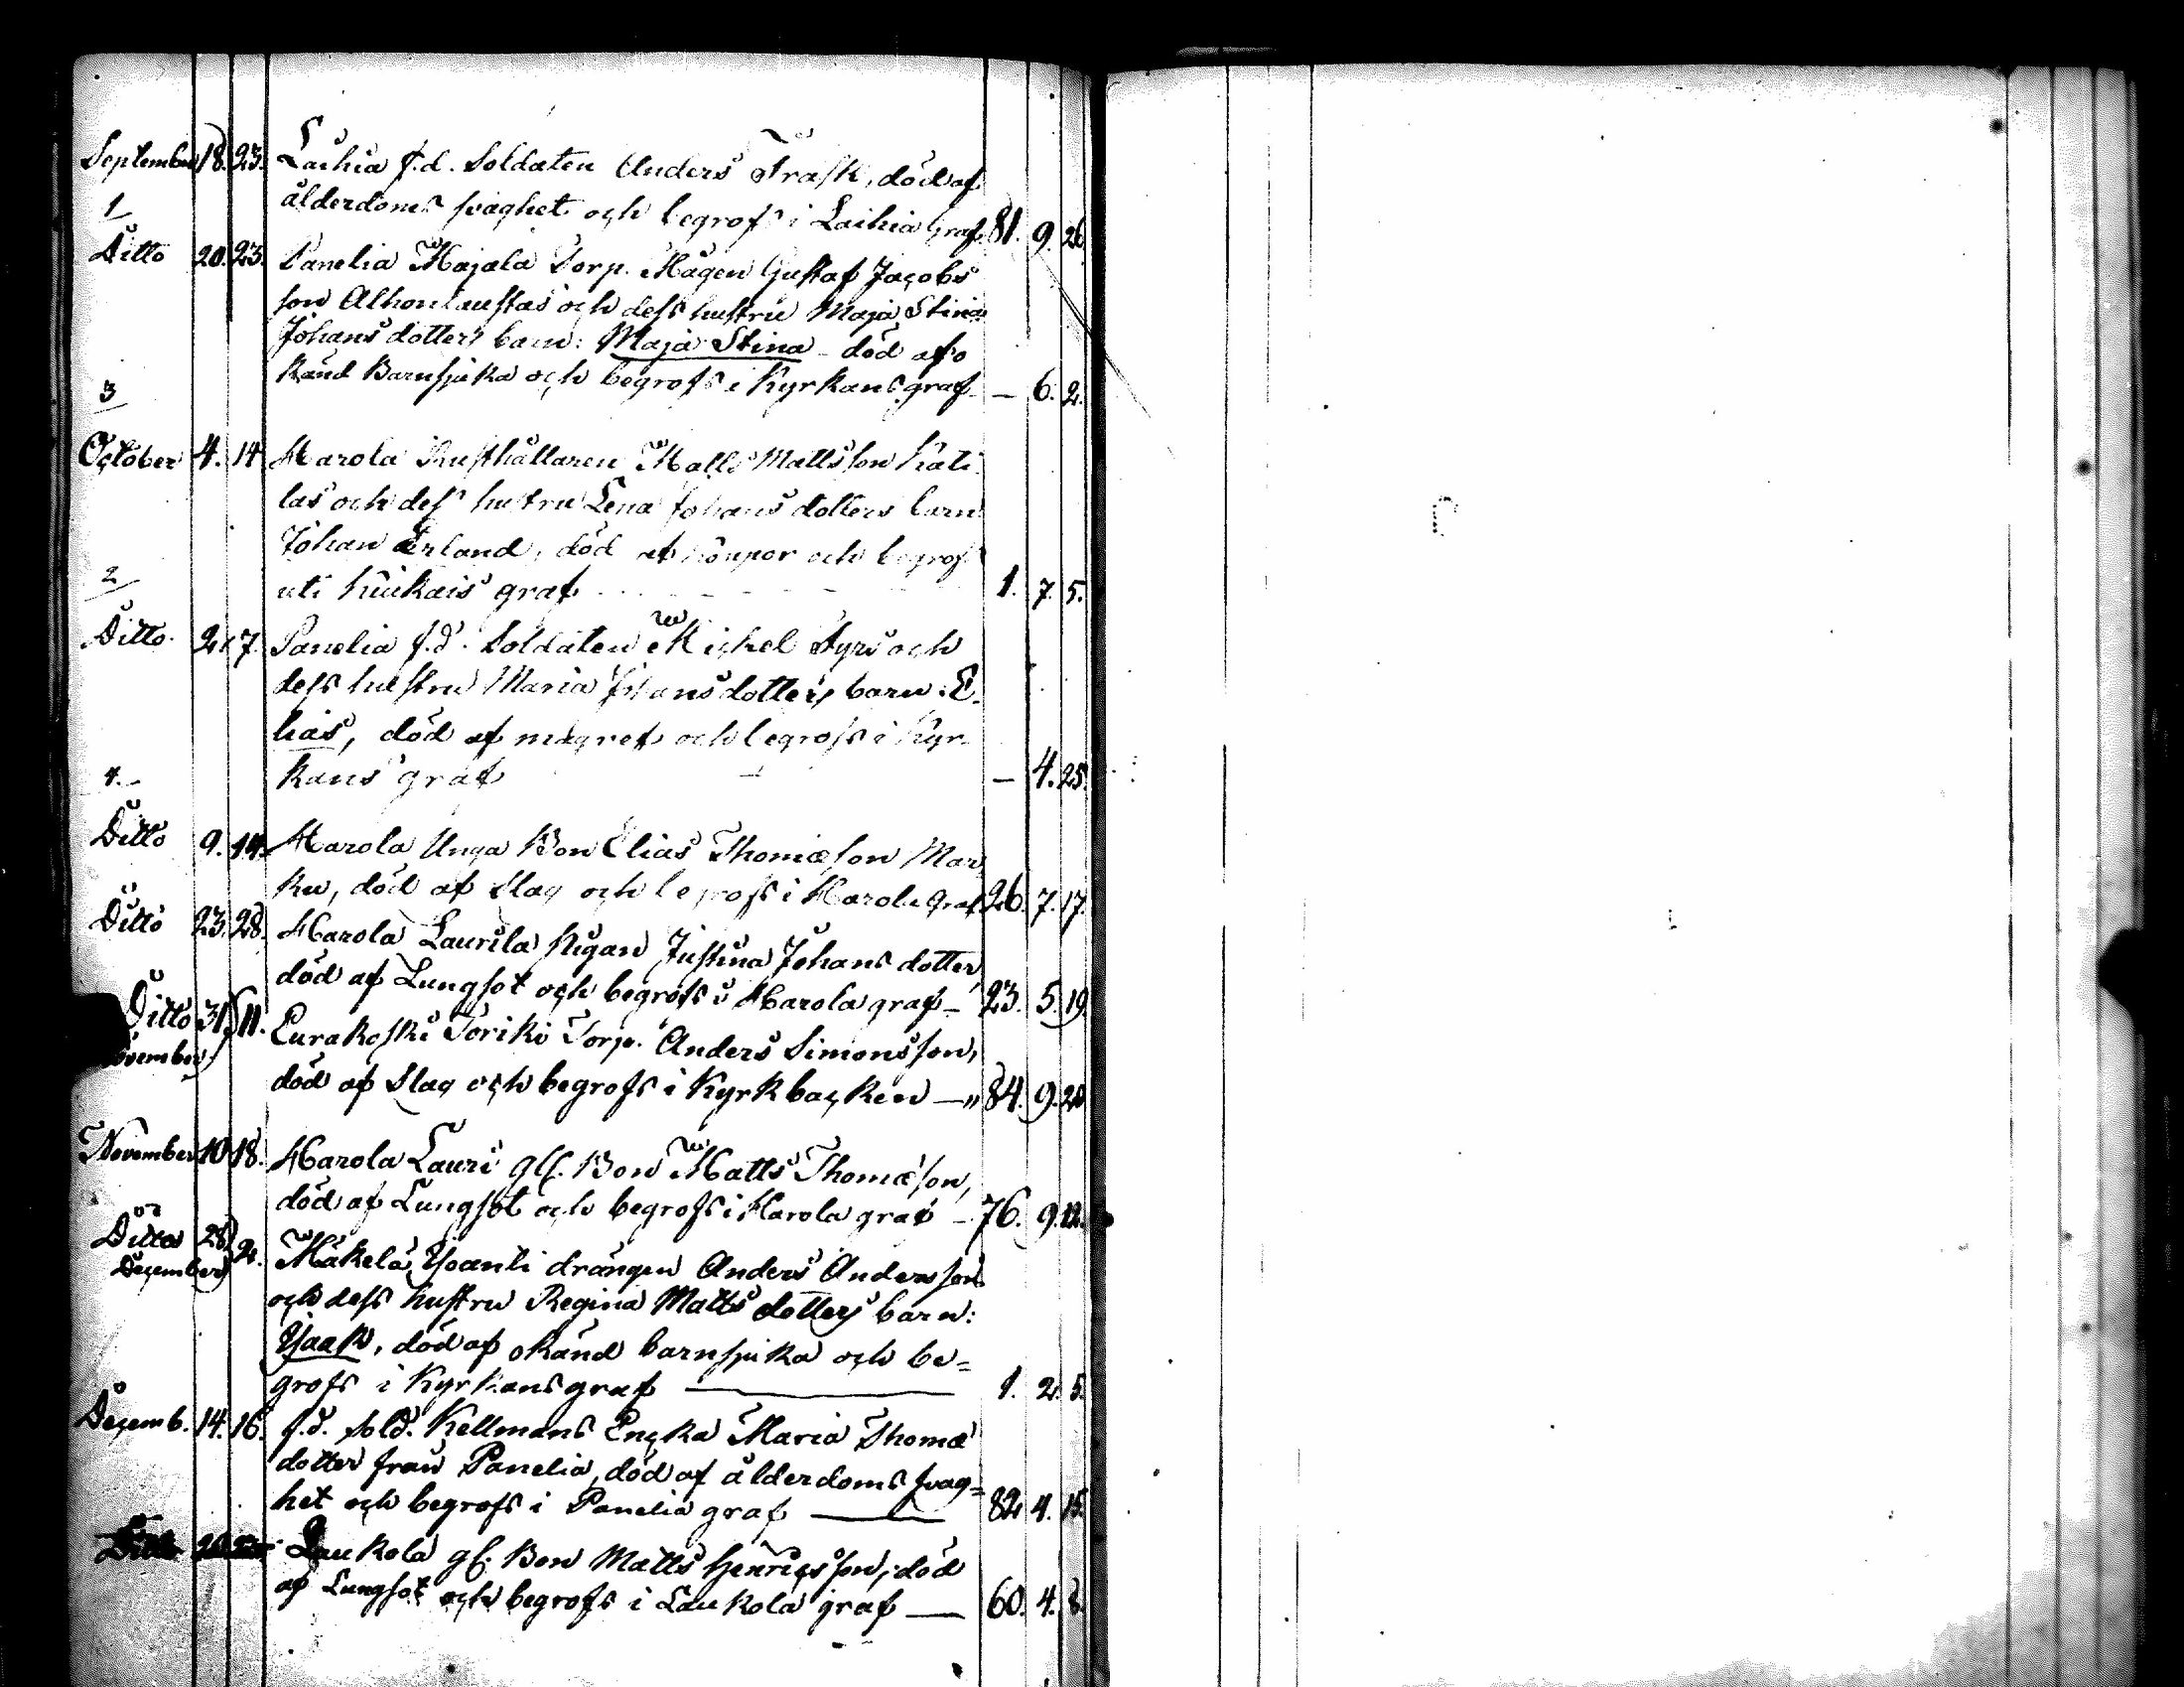 September 18. 23. Laihia f.d. Soldaten Anders Trask, död af
ålderdoms svaghet och begrofs i Laihia graf 81. 9. 26.
1
Ditto 20. 23. Panelia Majala Torp. Mågen Gustaf Jacobs
son Alhonlaustas och dess hustru Maja Stina
Johansdotters barn: Maja Stina - död af o
känd Barnsjuka och begrofs i Kyrkans graf - 6. 2.
3
October 4. 14. Harola Rusthållaren Matts Mattsson Kati
las och dess hustru Lena Johansdotters barn
Johan Erland, död af och begrofs
uti graf 1. 7. 5.
2
Ditto 2. 7. Panelia f.d. Soldaten Michel Tyrs och
dess hustru Maria Johansdotters barn: E
lias, död af och begrofs i Kyr
kans graf - 4. 25.
4.
Ditto 9. 14. Harola Unga Bon Elias Thomæson Mar
ku, död af Slag och begrofs i Harola graf 26. 7. 17.
Ditto 23. 28. Harola Laurila Pigan Justina Johansdotter,
död af Lungsot och begrofs i Harola graf - 23. 5. 19.
Ditto 31. 11. Eurakoski Toriki Torp. Anders Simonsson,
November
död af Slag och begrofs i Kyrkbacken - " 84. 9. 20
November 10. 18. Harola Lauri gll. Bon Matts Thomæson,
död af Lungsot och begrofs i Harola graf - 76. 9. 12.
Ditto 28. 2. Mäkelä Yoanti drängen Anders Andersson
December
och dess hustru Regina Matts dotters barn:
Isaak, död af okänd barnsjuka och be=
grofs i Kyrkans graf 1. 2. 5.
Decemb. 14. 16. f.d. Sold. Kellmans Encka Maria Thomæ
dotter från Panelia, död af ålderdoms svag=
het och begrofs i Panelia graf 82 4. 15.
Ditto Laukola gl. Bon Matts Henricsson, död
af Lungsot och begrofs i Laukola graf 60. 4. 8.